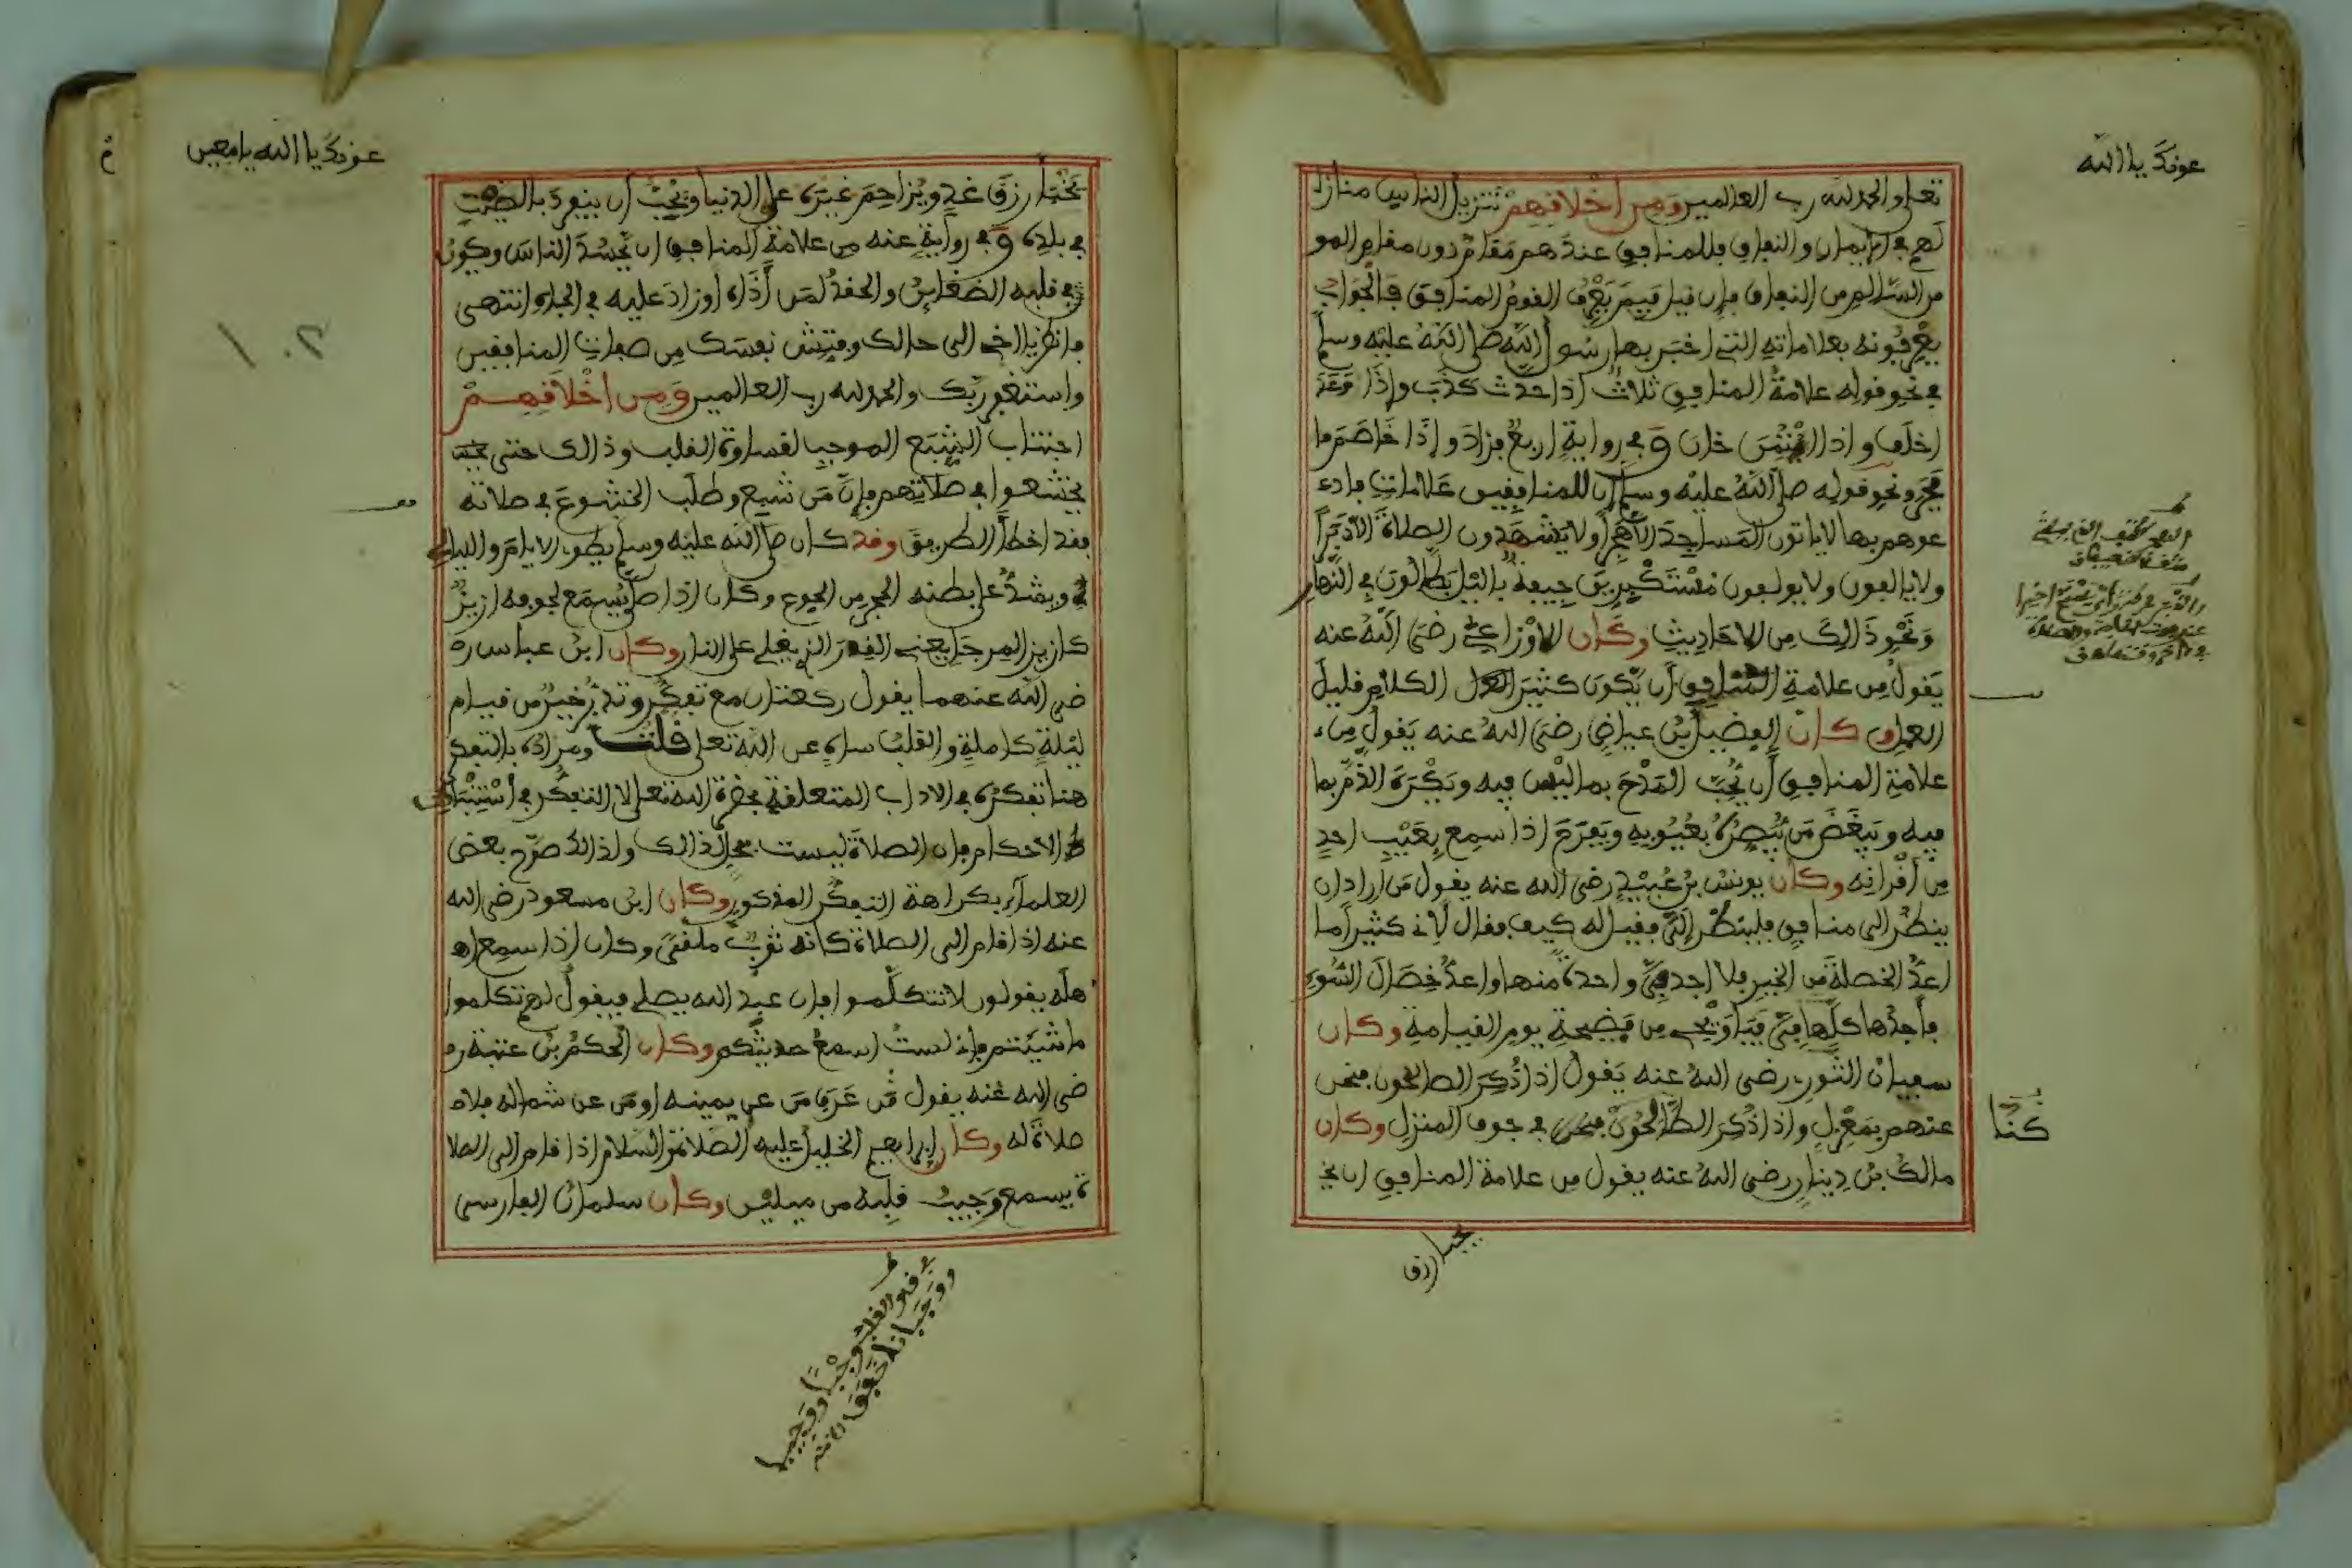 عونك يا الله
تعلى والحمد لله رب العالمين ومن أخلافهم تنزيل الناس منازل
لهم في الإيمان والنفاق فللمنافق عندهم مقام دون مقام المو
من السالم من النفاق فإن قيل فبم يعرف القوم المنافق فالجواب
يعرفونه بعلاماته التي اخبر بها رسول الله صلى الله عليه وسلم
في نحو قوله علامة المنافق ثلاث اذا حدث كذب وإذا وعد
اخلف واذا ائتمن خان وفي رواية اربع فزاد وإذا خاصم
فجر ونحو قوله صلى الله عليه وسلم ان للمنافقين علامات فادء
عوهم بها لا ياتون المساجد الا هجرا ولا يشهدون الصلاة الا دبرا
ولا يالفون ولا يولفون مستكبرين جيفة بالليل بطالون في النهار
ونحو ذالك من الاحاديث وكان الاوزاعي رضي الله عنه
يقول من علامة المنافق أن يكون كثير الكلام قليل
العمل وكان الفضيل بن عياض رضي الله عنه يقول من ء
علامة المنافق أن يحب المدح بما ليس فيه ويكره الذم بما
فيه ويبغض من يبصره بعيوبه ويفرح اذا سمع بعيب احد
من أقرانه وكان يونس بن عبيد رضي الله عنه يقول من اراد ان
ينظر الى منافق فلينظر إلي فقيل له كيف فقال لأني كثيرا ما
اعد الخصلة من الخير فلا اجد في واحدة منها واعد خصال السوء
فأجدها كلها في فيا ويحي من فضيحة يوم القيامة وكان
سفيان الثوري رضي الله عنه يقول اذا ذكر الصالحون فنحن
عنهم بمعزل واذا ذكر الطالحون فنحن في جوف المنزل وكان
كنا
مالك بن دينار رضي الله عنه يقول من علامة المنافق ان يخ
يختبا رزق
عونك يا الله يا معين
يختبا رزق غد ويزاحم غيره على الدنيا ويحب أن ينفرد بالصيت
في بلده وفي رواية عنه من علامة المنافق ان يحسد الناس ويكون
في قلبه الضغاين والحقد لمن أذاه اوزاد عليه في الجاه انتهى
فانظر يا اخي الى حالك وفتش نفسك من صفات المنافقين
واستغفر ربك والحمد لله رب العالمين ومن أخلافهم
اجتناب الشبع الموجب لقساوة القلب وذالك حتى
يخشعوا في صلاتهم فإن من شبع وطلب الخشوع في صلاته
فقد اخطأ الطريق وقد كان صلى الله عليه وسلم يطوي الايام والليالي
ويشد على بطنه الحجر من الجوع وكان اذا صلى يسمع لجوفه ازيز
كازيز المرجل يعني القدر الذي يغلي على النار وكان ابن عباس ر
ضي الله عنهما يقول ركعتان مع تفكر وتدبر خير من قيام
ليلة كاملة والقلب ساه عن الله تعلى قلت ومراده بالتفكر
هنا تفكره في الاداب المتعلقة بحضرة الله تعلى لا التفكر في استنباط
الاحكام فإن الصلاة ليست محلا لذالك ولذالك صرح بعض
العلماء بكراهة التفكر المذكور وكان ابن مسعود رضي الله
عنه اذا قام الى الصلاة كانه ثوب ملقى وكان اذا سمع اه
هله يقولون لا تتكلموا فإن عبد الله يصلي فيقول لهم تكلموا
ما شيتم فإني لست اسمع حديثكم وكان الحكم بن عتبة ر
ضي الله عنه يقول من عرف من عن يمينه اومن عن شماله فلا
صلاة له وكان إبراهيم الخليل عليه الصلاة والسلام اذا قام الى الصلا
ة يسمع وجيب قلبه من ميلين وكان سلمان الفارسي